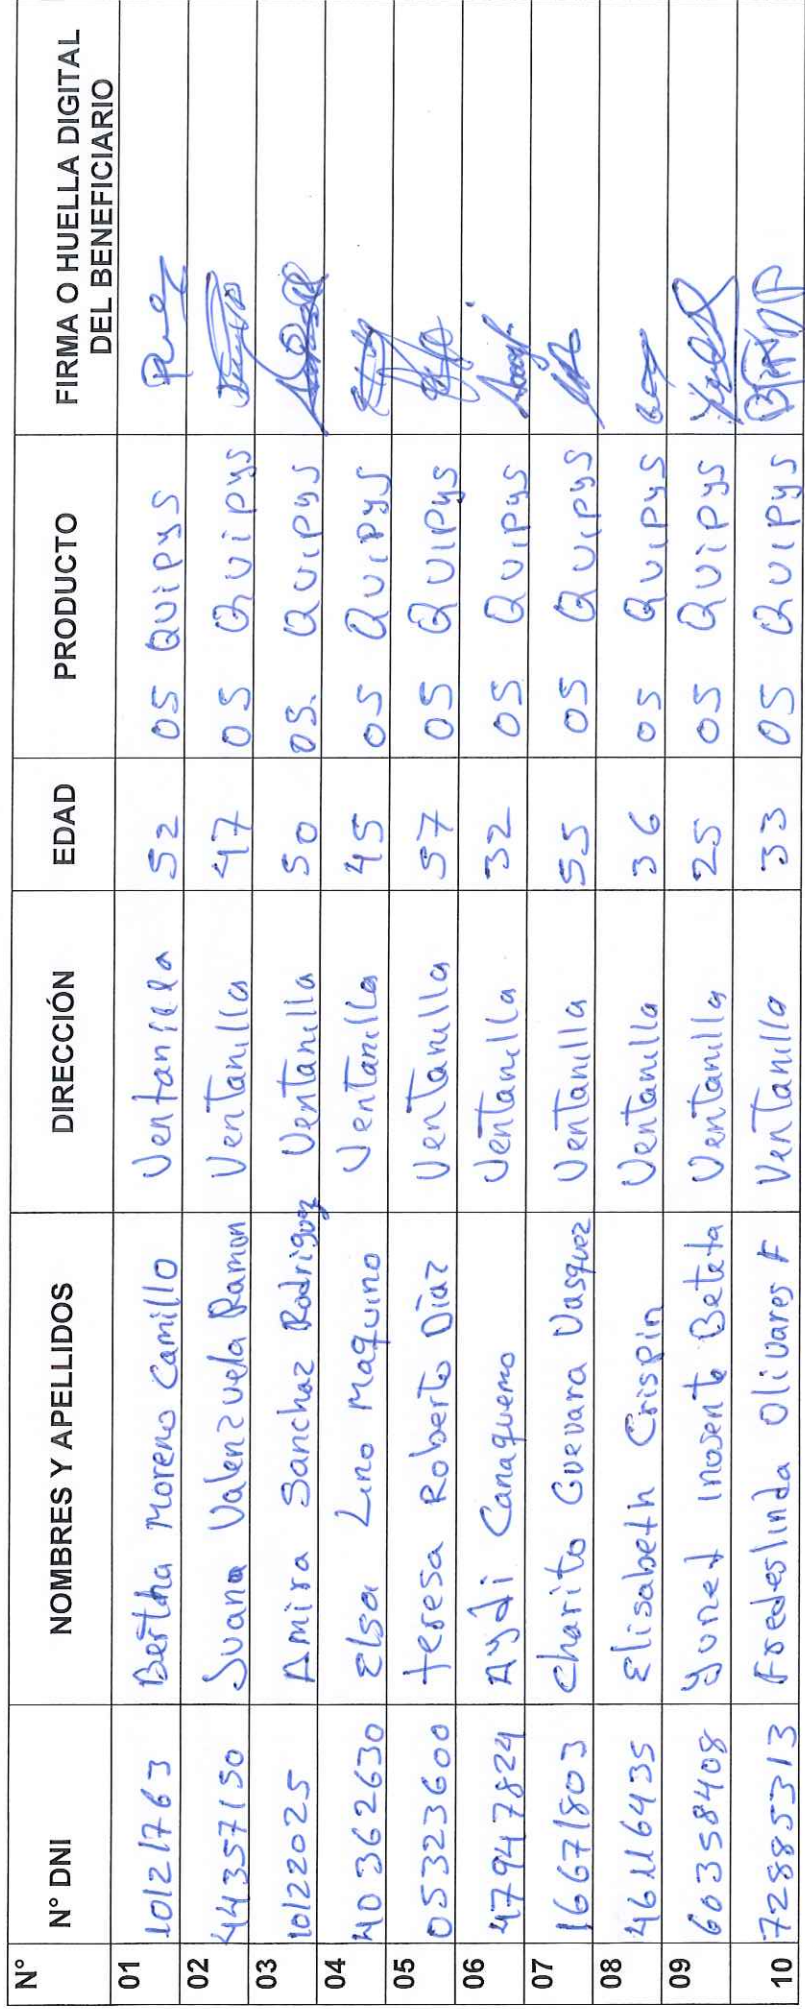 N° N° DNI NOMBRES Y APELLIDOS DIRECCIÓN EDAD PRODUCTO FIRMA O HUELLA DIGITAL
DEL BENEFICIARIO
01 10121763 Bertha Moreno Camillo Ventanilla 52 05 Quipys
02 44357150 Juana Valenzuela Ramon Ventanilla 47 05 Quipys
03 10122025 Amira Sanchaz Rodriguez Ventanilla 50 05. Quipys
04 40362630 Elsa Lino Maquino Ventanilla 45 05 Quipys
05 05323600 teresa Roberto Díaz Ventanilla 57 05 Quipys
06 47947824 Aydi Canaquemo Ventanilla 32 05 Quipys
07 16671803 Charito Guevara Vasquez Ventanilla 55 05 Quipys
08 46116435 Elisabeth Crispin Ventanilla 36 05 Quipys
09 60358408 Yunet inosente Beteta Ventanilla 25 05 Quipys
10 72885313 Fredeslinda Olivares F Ventanilla 33 05 Quipys